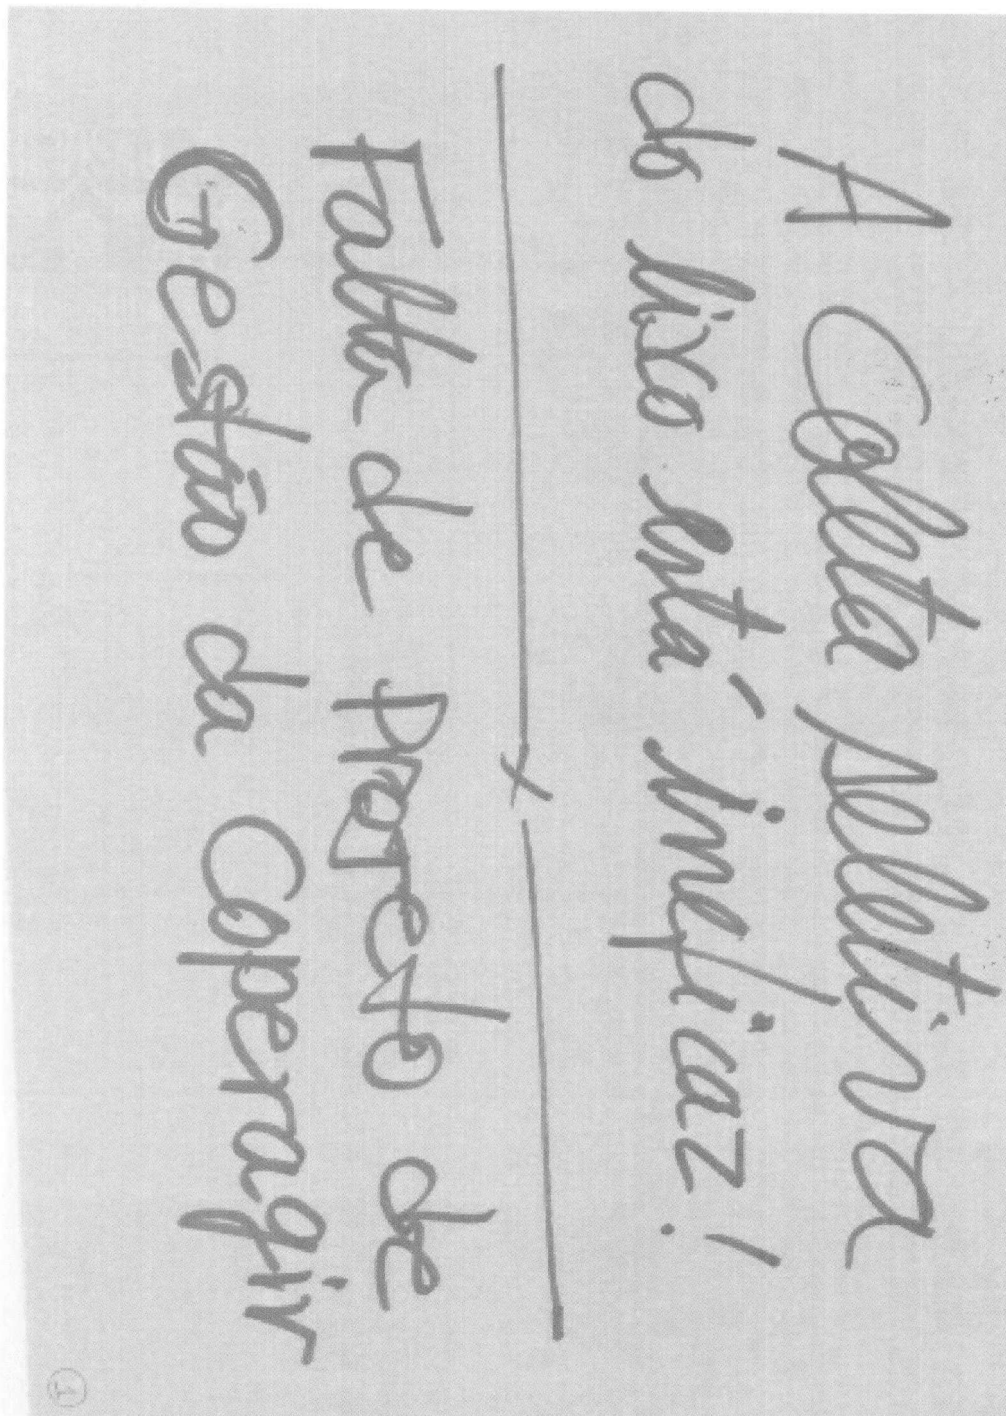 A Coleta seletiva
do lixo está ineficaz!
x
Falta de projeto de
Gestão da Coperagir
1